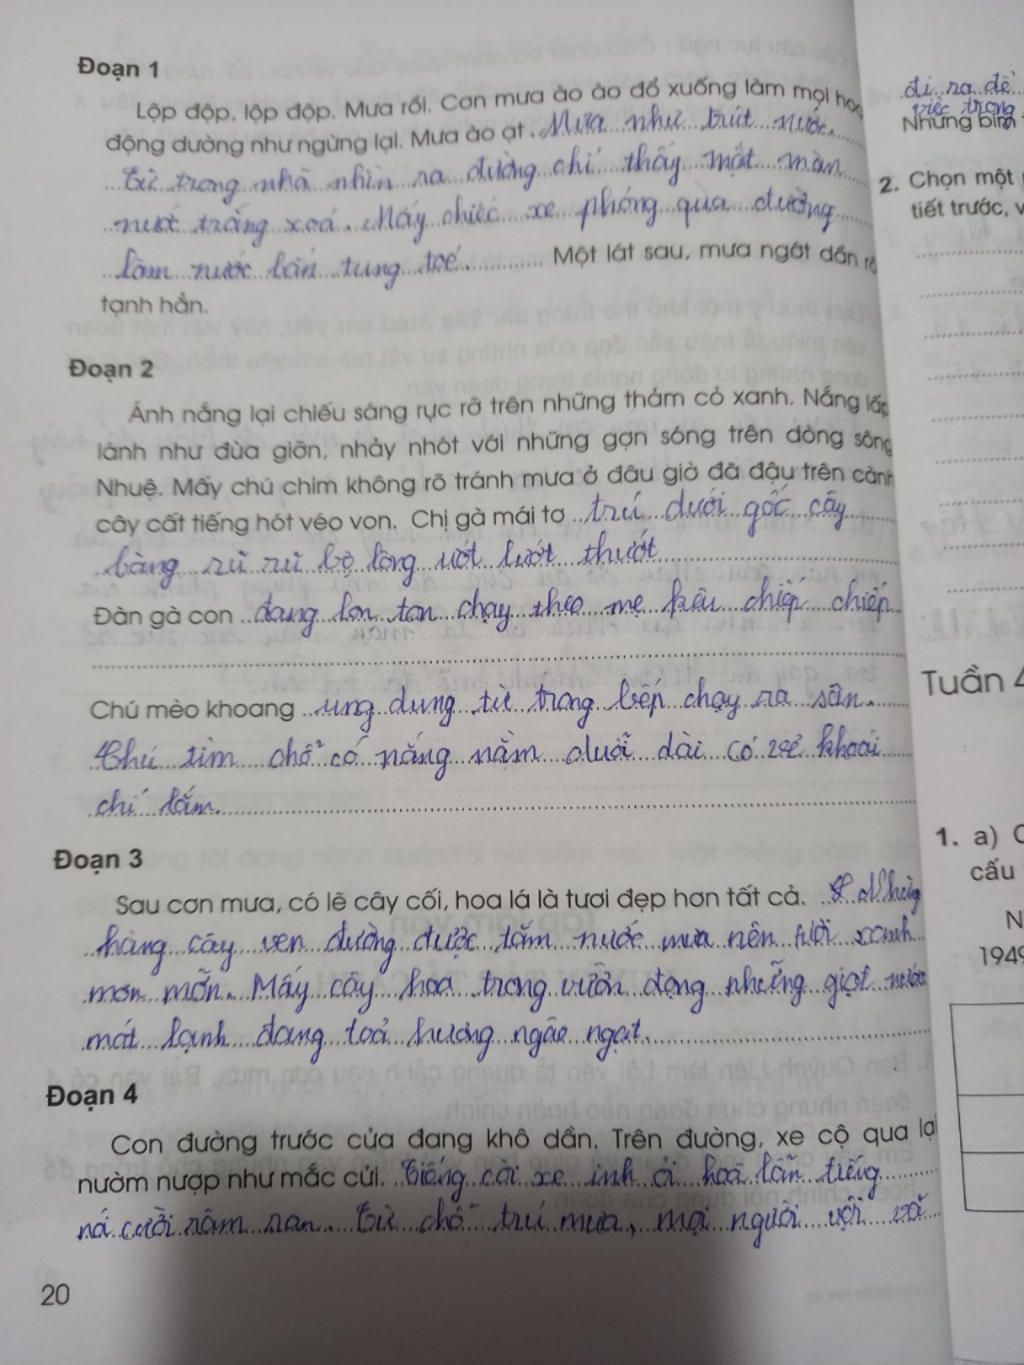 Đoạn 1
Lộp độp, lộp độp. Mưa rồi. Cơn mưa ào ào đổ xuống làm mọi hoạ
động dường như ngừng lại. Mưa ào ạt. Mưa như trút nước.
Từ trong nhà nhìn ra đường chỉ thấy một màn
nước trắng xoá. Mấy chiếc xe phóng qua đường
làm nước bắn tung toé. Một lát sau, mưa ngớt dần rồ
tạnh hẳn.
Đoạn 2
Ánh nắng lại chiếu sáng rực rỡ trên những thảm cỏ xanh. Nắng lấp
lánh như đùa giỡn, nhảy nhót với những gợn sóng trên dòng sông
Nhuệ. Mấy chú chim không rõ tránh mưa ở đâu giờ đã đậu trên cành
cây cất tiếng hót véo von. Chị gà mái tơ trú dưới gốc cây
bàng rũ rũ bộ lông ướt lướt thướt
Đàn gà con đang lon ton chạy theo mẹ kêu chiếp chiếp
Chú mèo khoang ung dung từ trong bếp chạy ra sân.
Chú tìm chỗ có nắng nằm duỗi dài có vẻ khoái
chí lắm.
Đoạn 3
Sau cơn mưa, có lẽ cây cối, hoa lá là tươi đẹp hơn tất cả. Những
hàng cây ven đường được tắm nước mưa nên tươi xanh
mơn mởn. Mấy cây hoa trong vườn đọng những giọt nước
mát lạnh đang toả hương ngào ngạt.
Đoạn 4
Con đường trước cửa đang khô dần. Trên đường, xe cộ qua lạ
nườm nượp như mắc cửi. Tiếng còi xe inh ỏi hoà lẫn tiếng
nói cười râm ran. Từ chỗ trú mưa, mọi người vội vã
20
đi ra để
việc trong
Những bím t
2. Chọn một
tiết trước, v
Tuần 4
1. a) C
cấu
N
1949